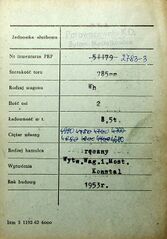 Jednostka służbowa
Nr inwentarza PKP 54179 2783-3
Szerokość toru 785mm
Rodzaj wagonu Wh
Ilość osi 2
Ładowność w t. 8,5t.
Ciężar własny
Rodzaj hamulca ręczny
Wytwórnia Wytw.Wag.i Most. Konstal
Rok budowy 1953r.